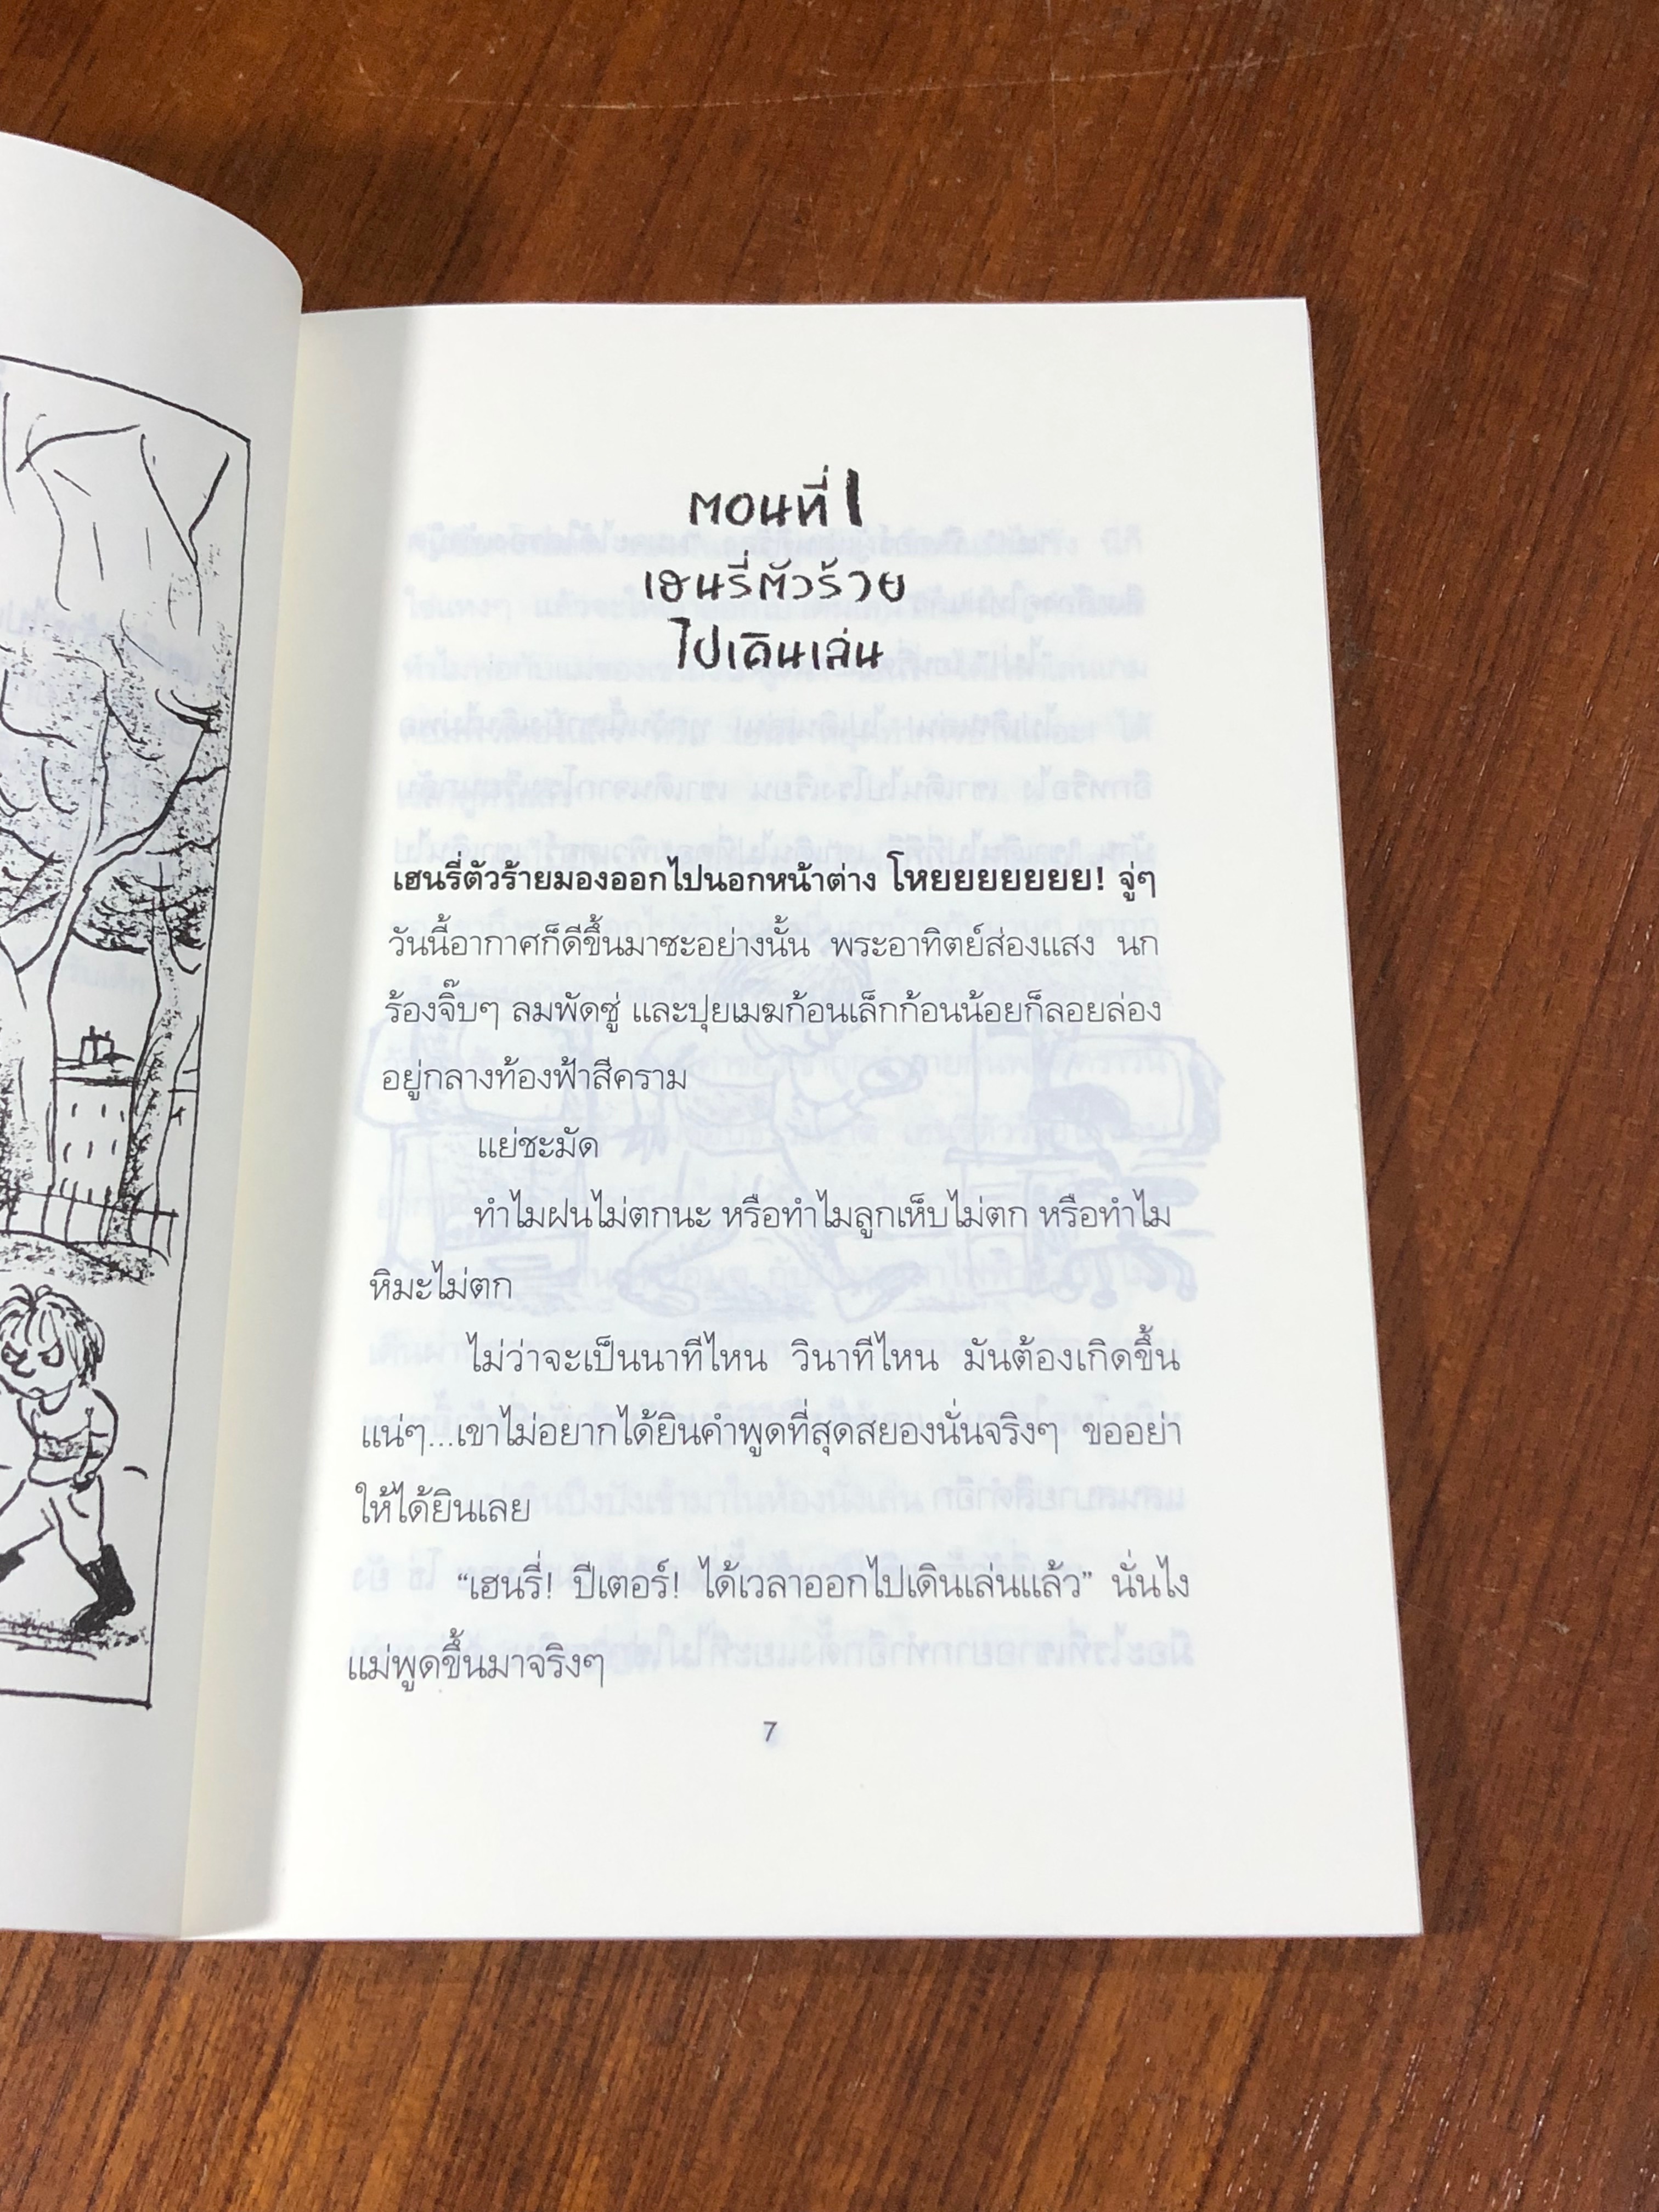 ตอนที่ 1
เฮนรี่ตัวร้าย
ไปเดินเล่น
เฮนรี่ตัวร้ายมองออกไปนอกหน้าต่าง โหยยยยยยย! จู่ๆ
วันนี้อากาศก็ดีขึ้นมาซะอย่างนั้น พระอาทิตย์ส่องแสง นก
ร้องจิ๊บๆ ลมพัดซู่ และปุยเมฆก้อนเล็กก้อนน้อยก็ลอยล่อง
อยู่กลางท้องฟ้าสีคราม
แย่ชะมัด
ทำไมฝนไม่ตกนะ หรือทำไมลูกเห็บไม่ตก หรือทำไม
หิมะไม่ตก
ไม่ว่าจะเป็นนาทีไหน วินาทีไหน มันต้องเกิดขึ้น
แน่ๆ...เขาไม่อยากได้ยินคำพูดที่สุดสยองนั่นจริงๆ ขออย่า
ให้ได้ยินเลย
“เฮนรี่! ปีเตอร์! ได้เวลาออกไปเดินเล่นแล้ว” นั่นไง
แม่พูดขึ้นมาจริงๆ
7